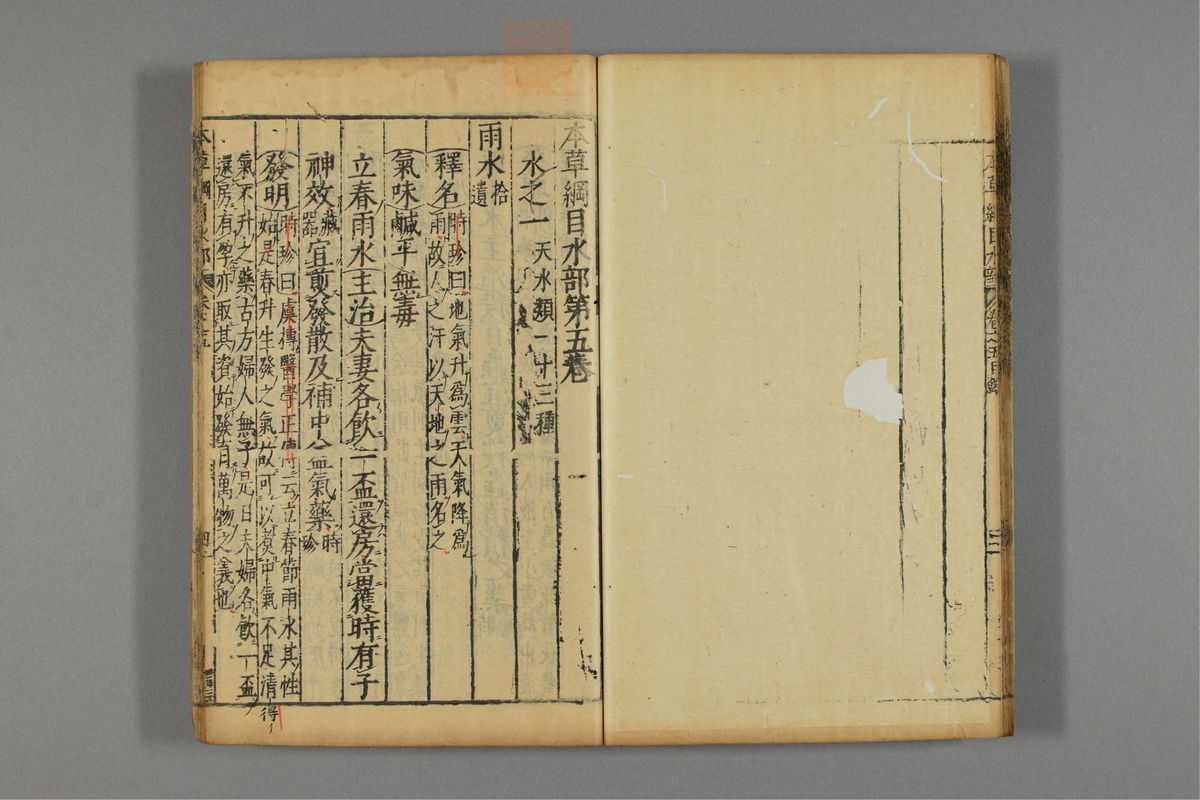 綱目水部 卷之五目錄
本草綱目水部第五卷
水之一 天水類一十三種
雨水 拾遺
釋名 時珍曰地氣升爲雲天氣降爲
雨故人之汗以天地之雨名之
氣味鹹平無毒
立春雨水主治夫妻各飲一盃還房當獲時有子
神效 藏器 宜煎發散及補中益氣藥 時珍
發明 時珍曰虞傳醫學正傳云立春節雨水其性
始是春升生發之氣故可以煑中氣不足清
得
氣不升之藥古方婦人無子是日夫婦各飲一盃
還房有孕亦取其資始發育萬物之義也
本草綱目水部 卷之五